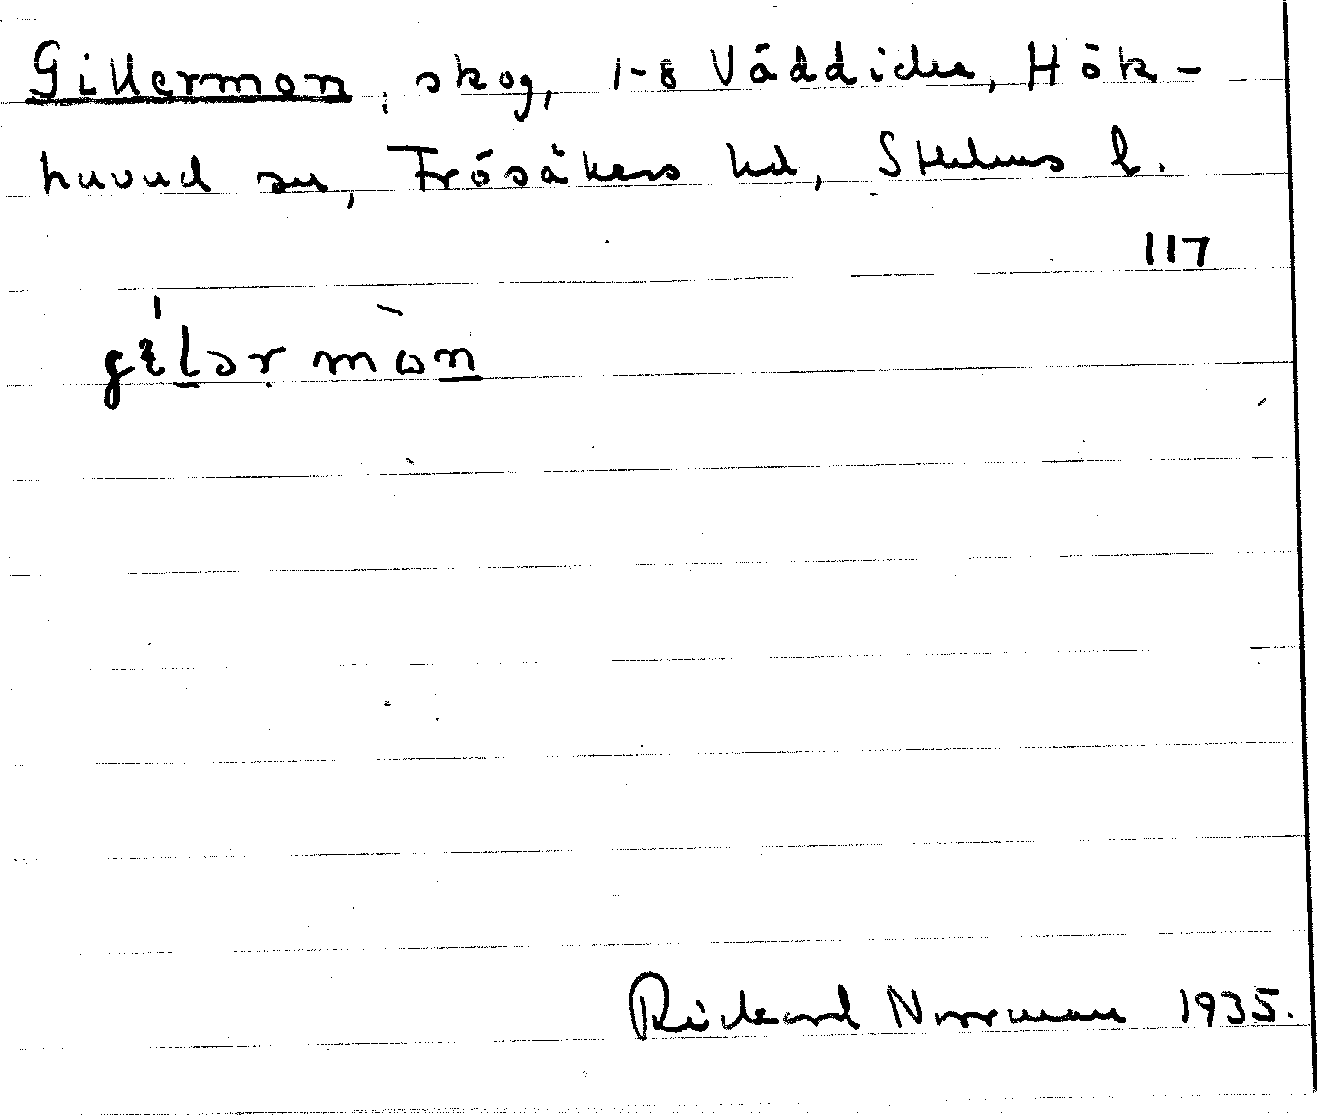 Gillermon, skog, 1-8 Väddider, Hök-
huvud sn, Frösåkers hd, Sthlms l.
117
gɩ̍lər mòn
Rickard Norrman 1935.